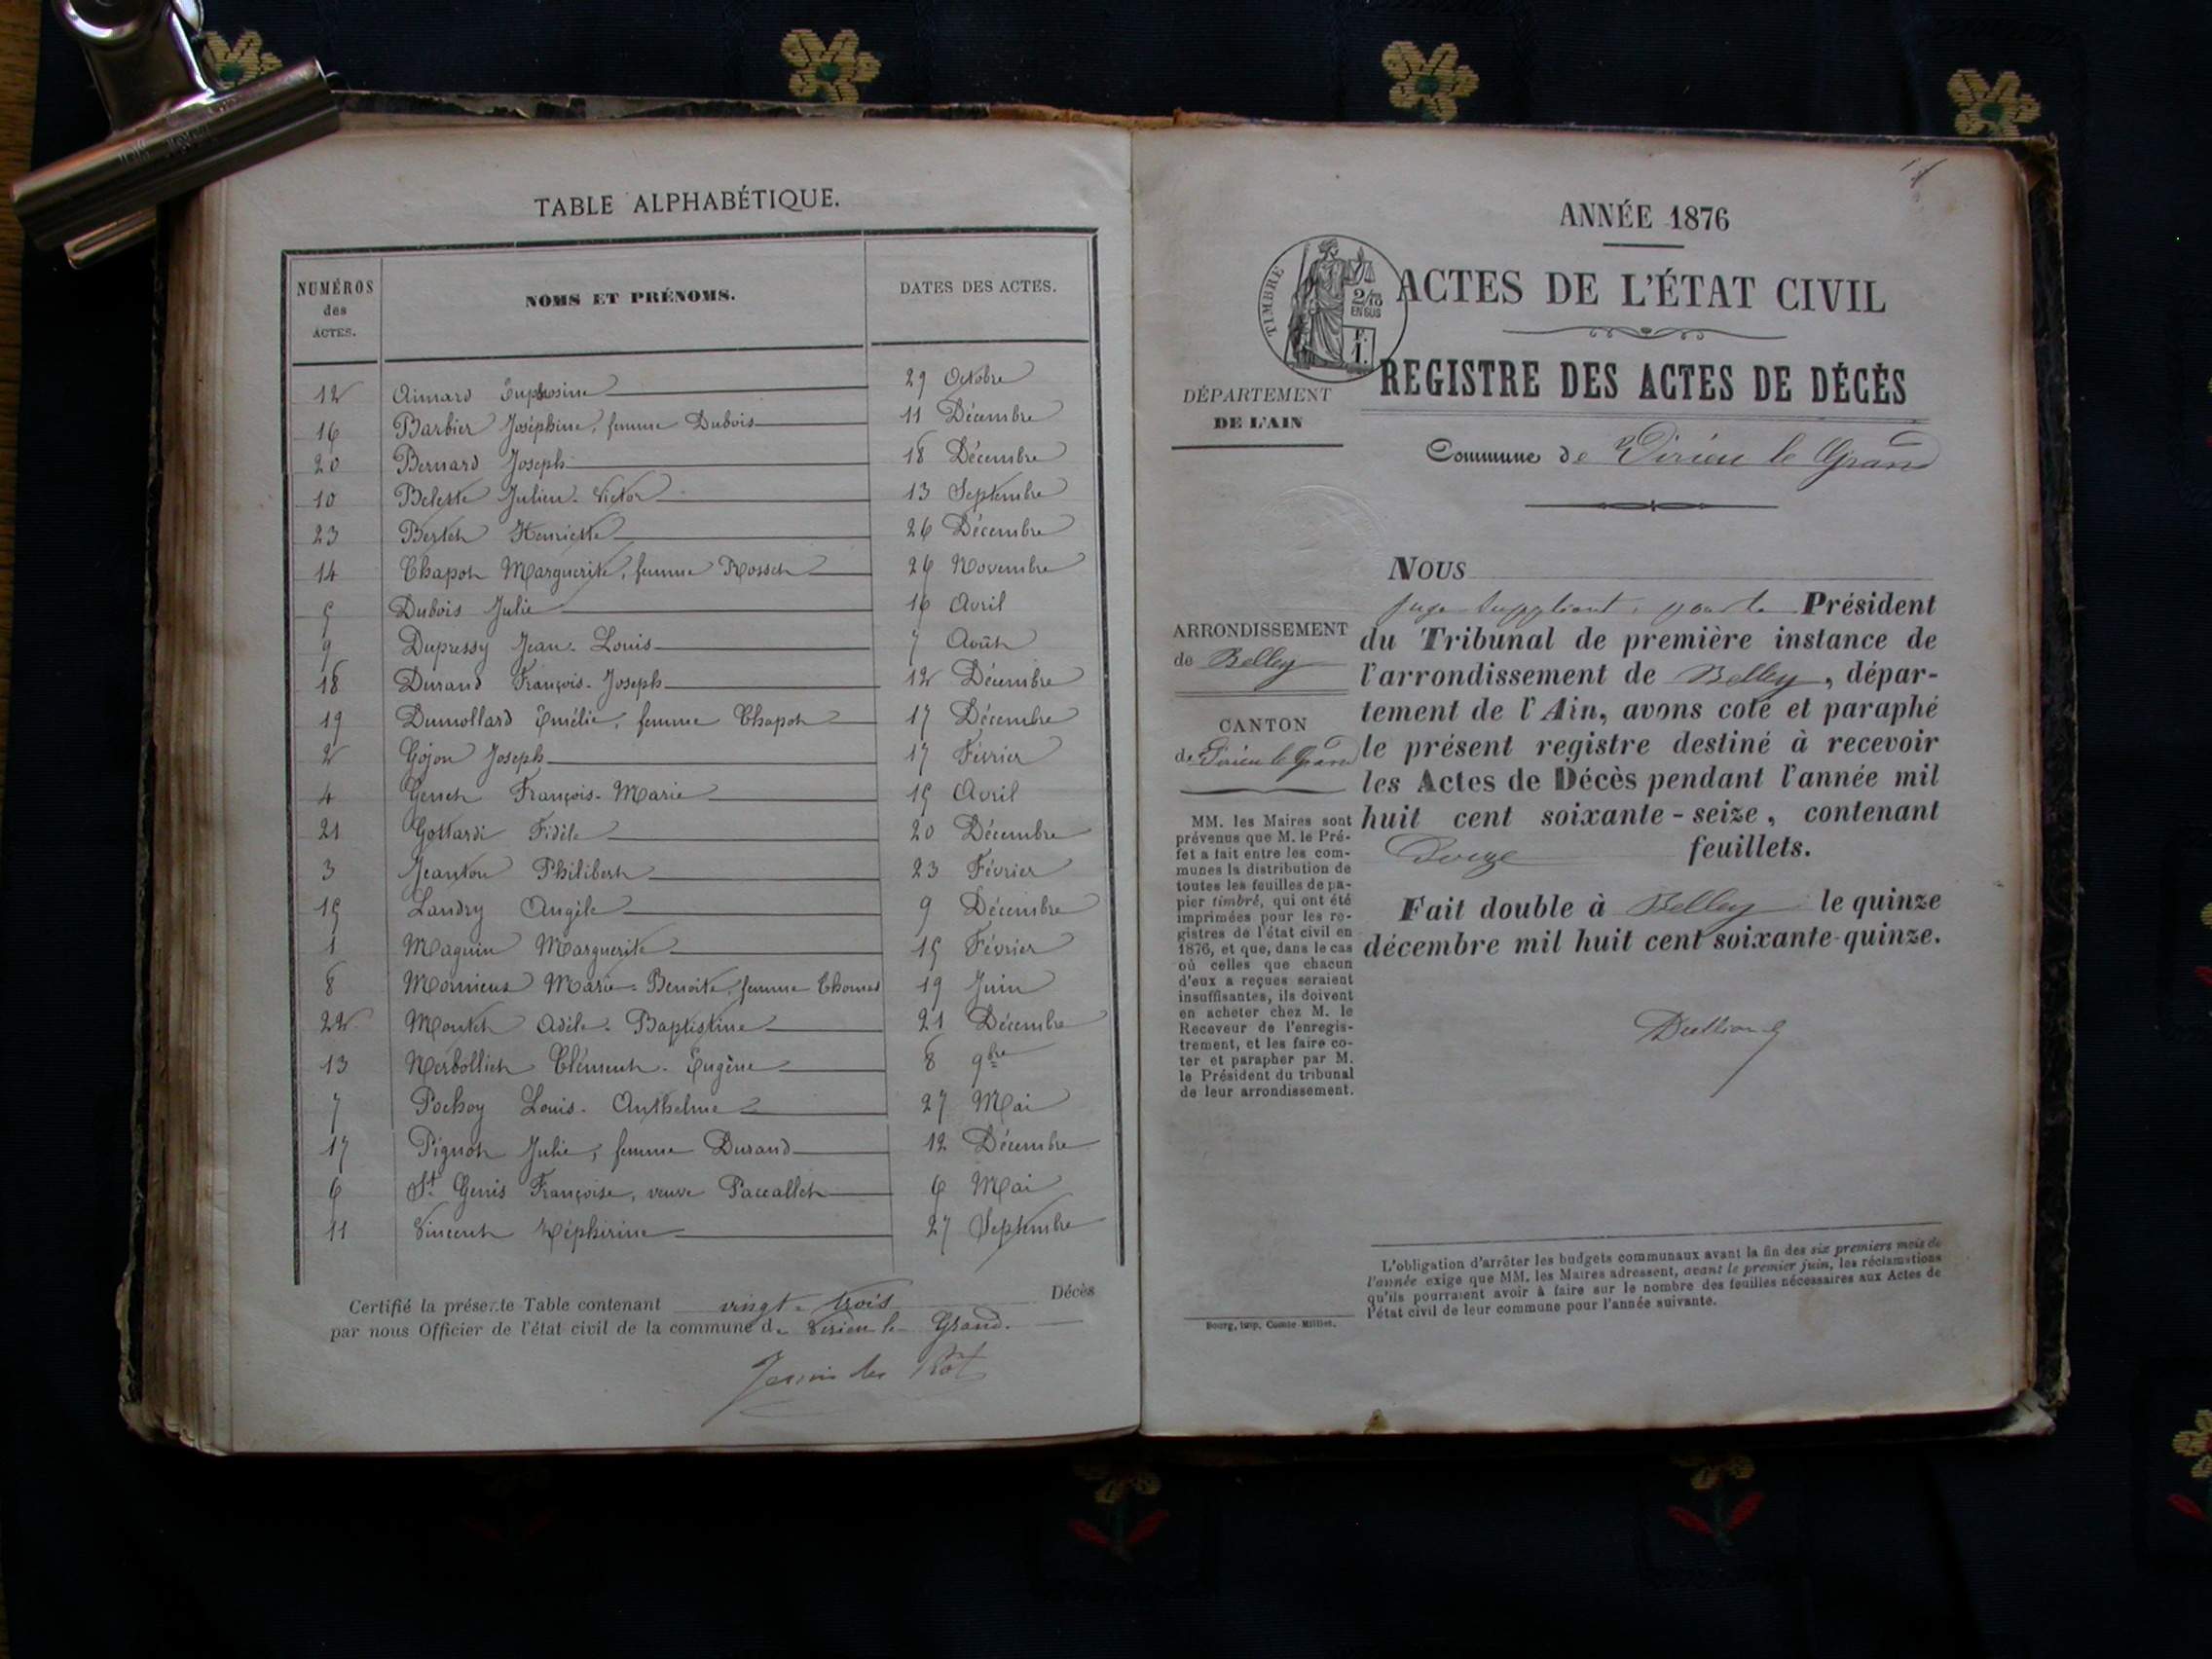 TABLE ALPHABÉTIQUE.
NUMÉROS des ACTES. NOMS ET PRÉNOMS. DATES DES ACTES.
12 Aimard Euphrosine 29 Octobre
16 Barbier Joséphine, femme Dubois 11 Décembre
20 Bernard Joseph 18 Décembre
10 Julien-Victor 13 Septembre
23 Bertet Henriette 26 Décembre
14 Chapot Marguerite, femme Rosset 24 Novembre
5 Dubois Julie 16 Avril
9 Dupressy Jean-Louis 7 Août
18 Durand François-Joseph 12 Décembre
19 Dumollard Emélie, femme Chapot 17 Décembre
2 Gojon Joseph 17 Février
4 Genet François-Marie 15 Avril
21 Gottardi Fidèle 20 Décembre
3 Jeanton Philibert 23 Février
15 Landry Angèle 9 Décembre
1 Maguin Marguerite 15 Février
8 Marie-Benoite, femme Thomas 19 Juin
22 Montet Adèle-Baptistine 21 Décembre
13 Nerbollier Clément-Eugène 8 9bre
7 Pochoy Louis-Anthelme 27 Mai
17 Pignot Julie, femme Durand 12 Décembre
6 St Genis Françoise, veuve Paccallet 6 Mai
11 Vincent Zéphirine 27 Septembre
Certifié la présente Table contenant vingt-trois Décès
par nous Officier de l'état civil de la commune de Virieu le Grand.
ANNÉE 1876
ACTES DE L'ÉTAT CIVIL
TIMBRE
2/10
EN SUS
F.
1.
REGISTRE DES ACTES DE DÉCÈS
DÉPARTEMENT
DE L'AIN
Commune de Virieu le Grand
NOUS
juge suppléant, pour le Président
du Tribunal de première instance de
l'arrondissement de Belley, dépar-
tement de l'Ain, avons coté et paraphé
le présent registre destiné à recevoir
les Actes de Décès pendant l'année mil
huit cent soixante-seize, contenant
Douze feuillets.
Fait double à Belley le quinze
décembre mil huit cent soixante-quinze.
ARRONDISSEMENT
de Belley
CANTON
de Virieu le Grand
MM. les Maires sont
prévenus que M. le Pré-
fet a fait entre les com-
munes la distribution de
toutes les feuilles de pa-
pier timbré, qui ont été
imprimées pour les re-
gistres de l'état civil en
1876, et que, dans le cas
où celles que chacun
d'eux a reçues seraient
insuffisantes, ils doivent
en acheter chez M. le
Receveur de l'enregis-
trement, et les faire co-
ter et parapher par M.
le Président du tribunal
de leur arrondissement.
L'obligation d'arrêter les budgets communaux avant la fin des six premiers mois de
l'année exige que MM. les Maires adressent, avant le premier juin, les réclamations
qu'ils pourraient avoir à faire sur le nombre des feuilles nécessaires aux Actes de
l'état civil de leur commune pour l'année suivante.
Bourg, imp. Comte-Milliet.